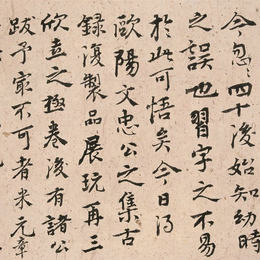 今忽〻四十後始知幼時
之誤也習字之不易
於此可悟矣今日得
歐陽文忠公之集古
録復製品展玩再三
欣喜之極卷後有諸公
跋予最不可者米元章